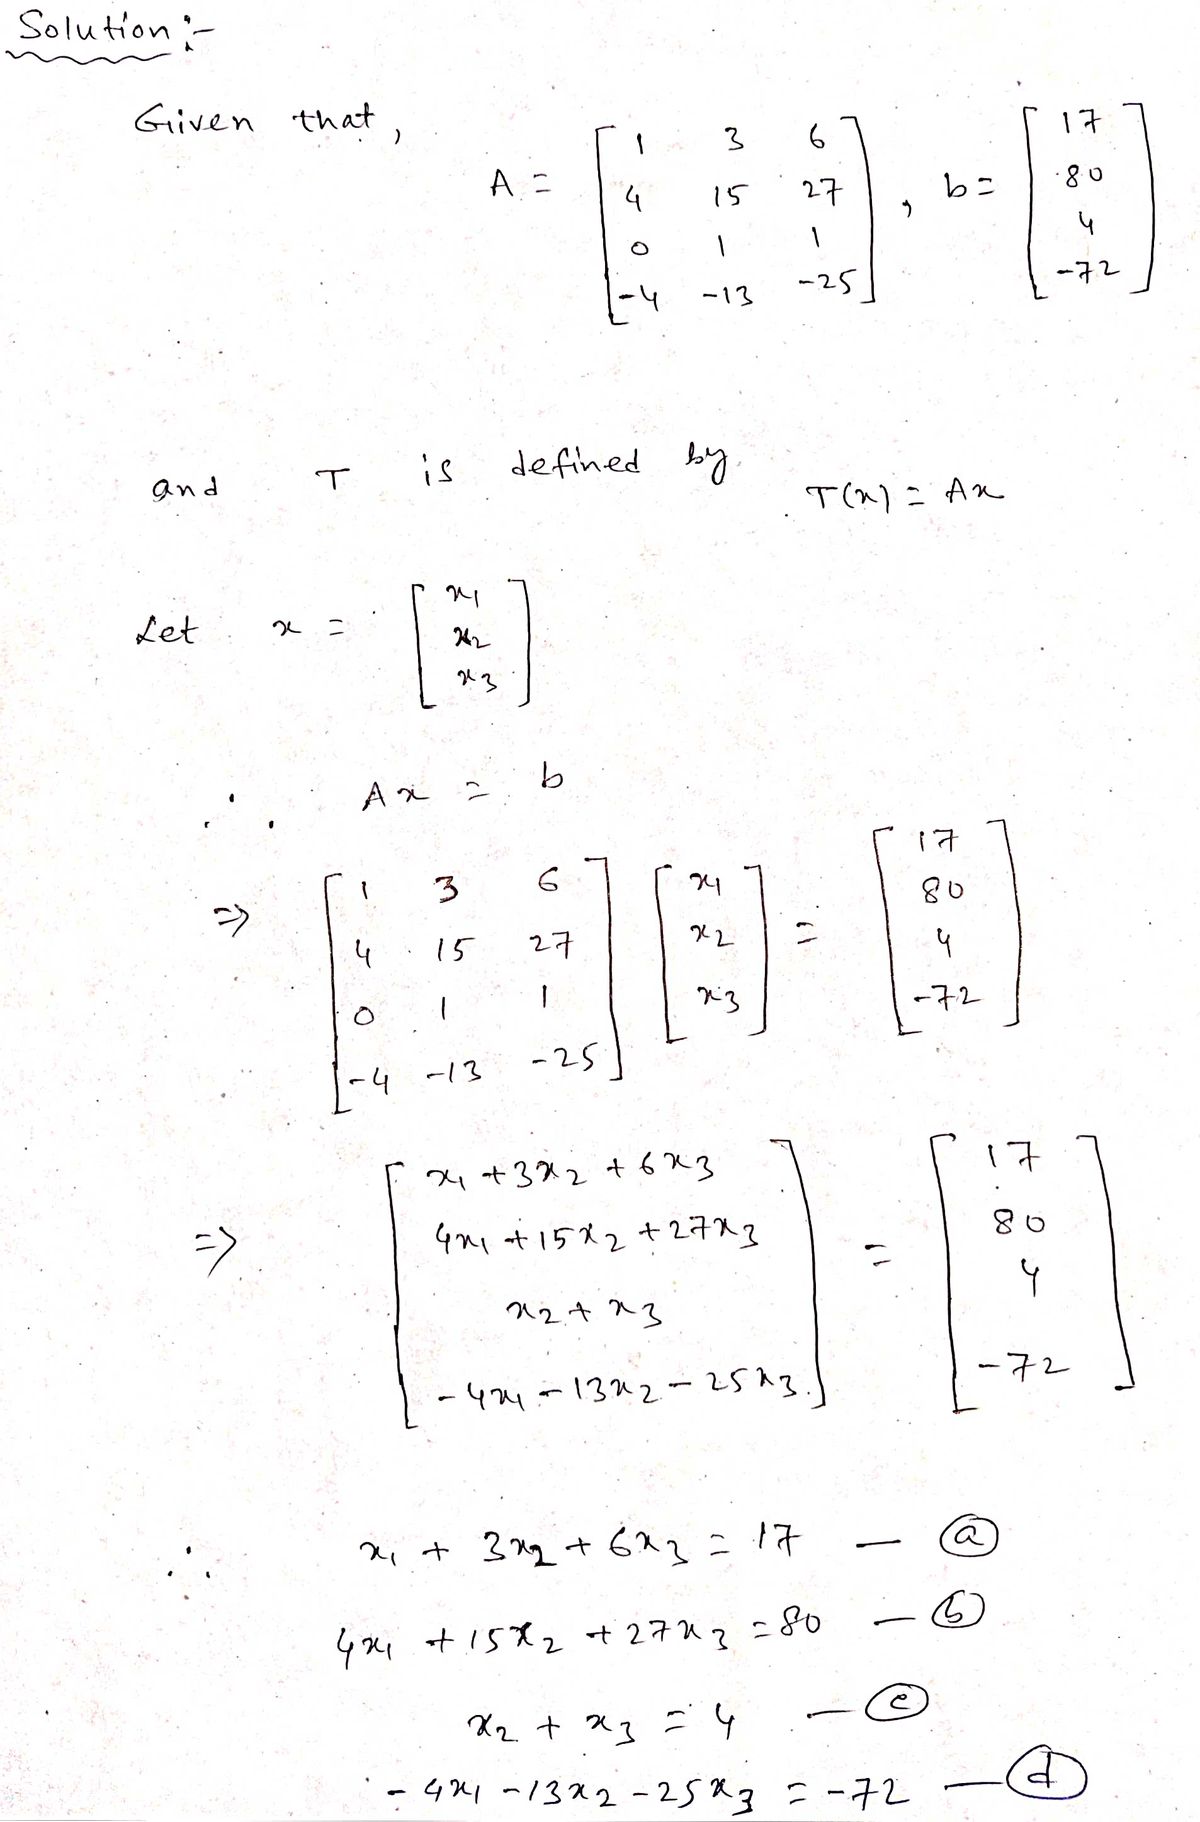 Solution :-
Given that,
A = [ 1 3 6
4 15 27
0 1 1
-4 -13 -25 ] , b = [ 17
80
4
-72 ]
and T is defined by T(x) = Ax
Let x = [ x1
x2
x3 ]
∴ Ax = b
⇒ [ 1 3 6
4 15 27
0 1 1
-4 -13 -25 ] [ x1
x2
x3 ] = [ 17
80
4
-72 ]
⇒ [ x1 + 3x2 + 6x3
4x1 + 15x2 + 27x3
x2 + x3
-4x1 - 13x2 - 25x3 ] = [ 17
80
4
-72 ]
∴ x1 + 3x2 + 6x3 = 17 — (a)
4x1 + 15x2 + 27x3 = 80 — (b)
x2 + x3 = 4 — (c)
-4x1 - 13x2 - 25x3 = -72 — (d)